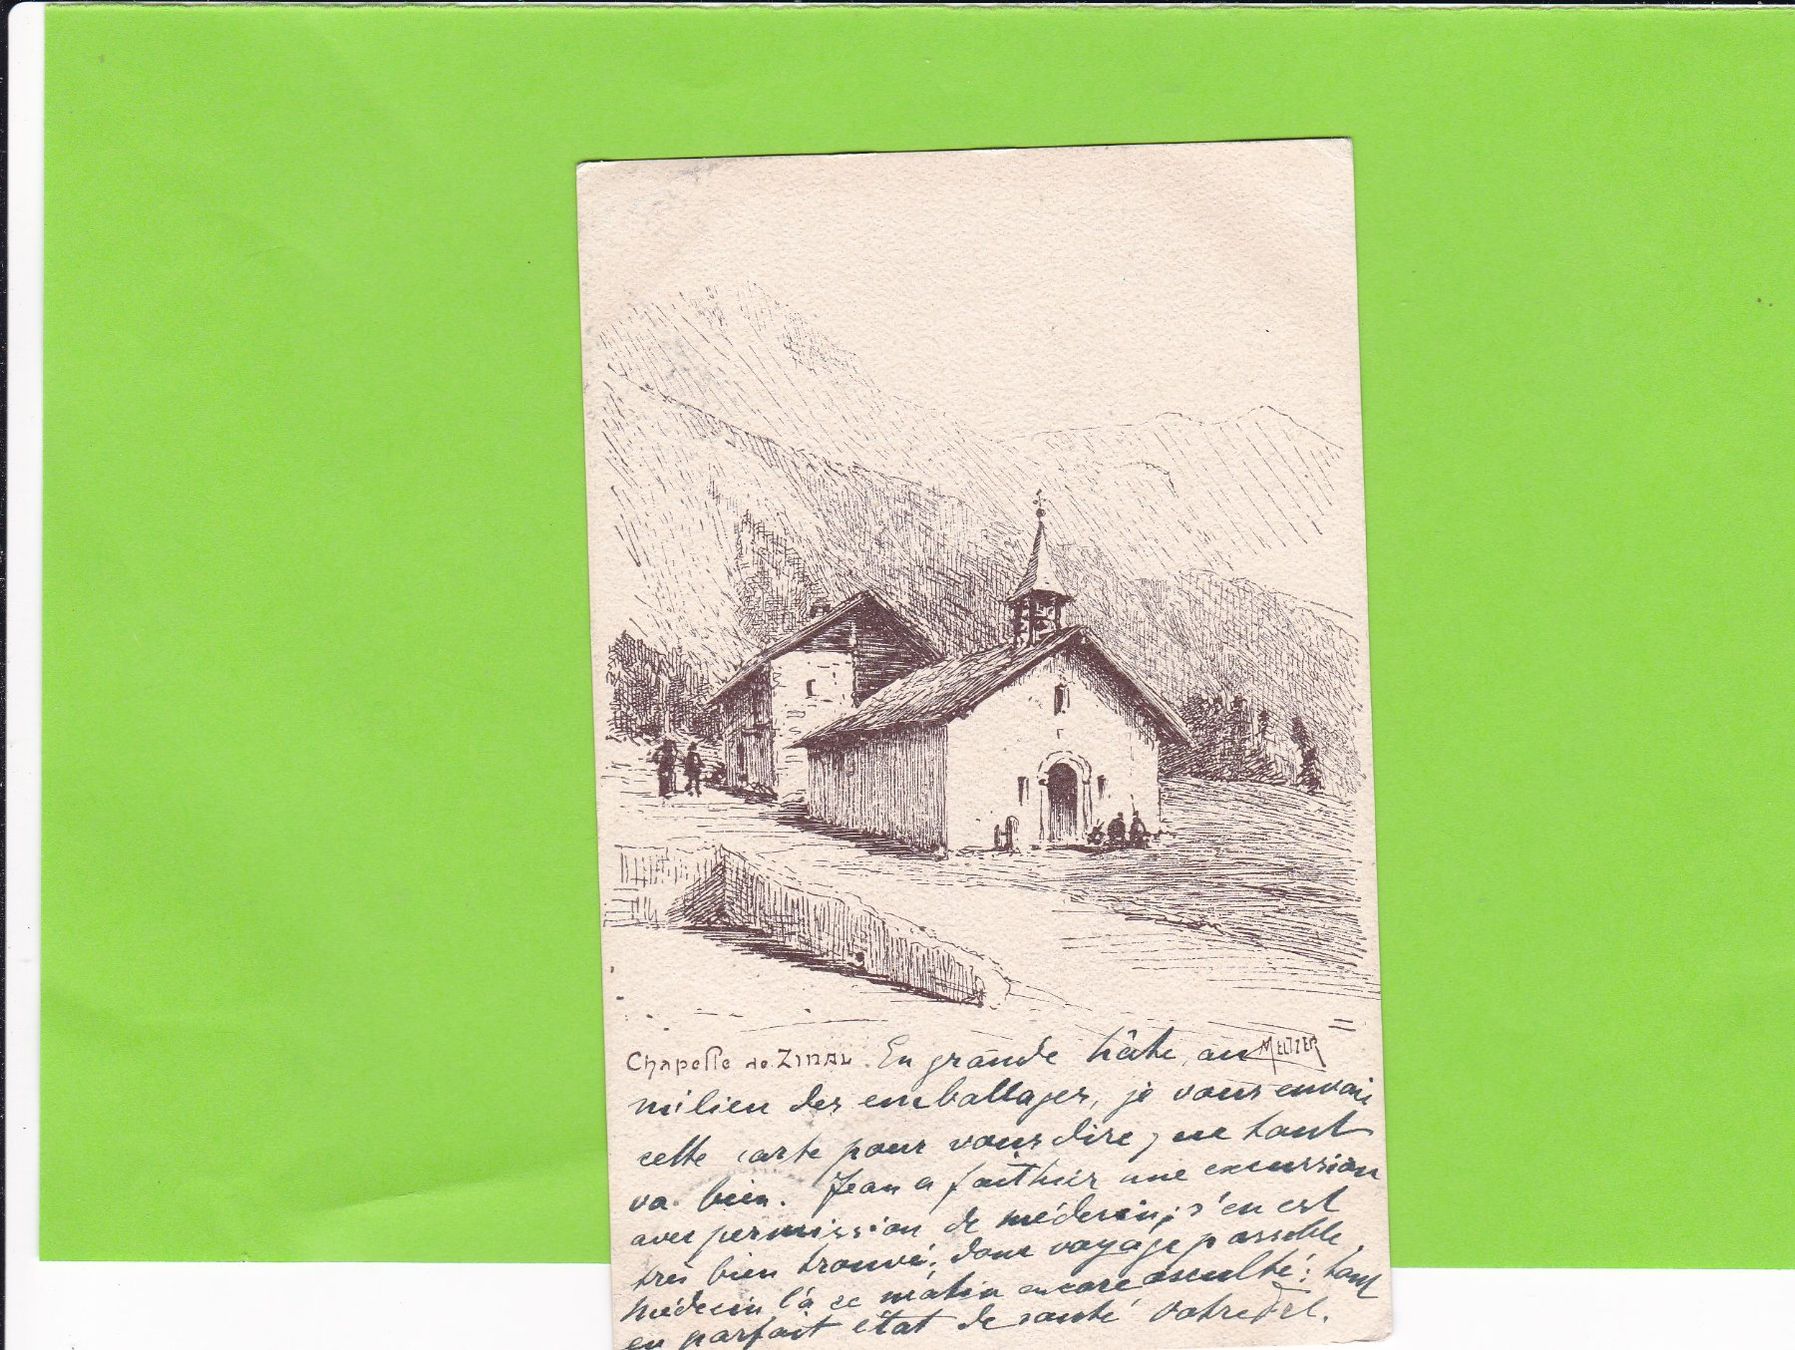 Chapelle de ZINAL. En grande hâte, au MELTZER
milieu des emballages, je vous envoie
cette carte pour vous dire que tout
va bien. Jean a fait hier une excursion
avec permission de médecin; s'en est
très bien trouvé; donc voyage possible,
médecin l'a ce matin encore ausculté: tout
en parfait état de santé Votre